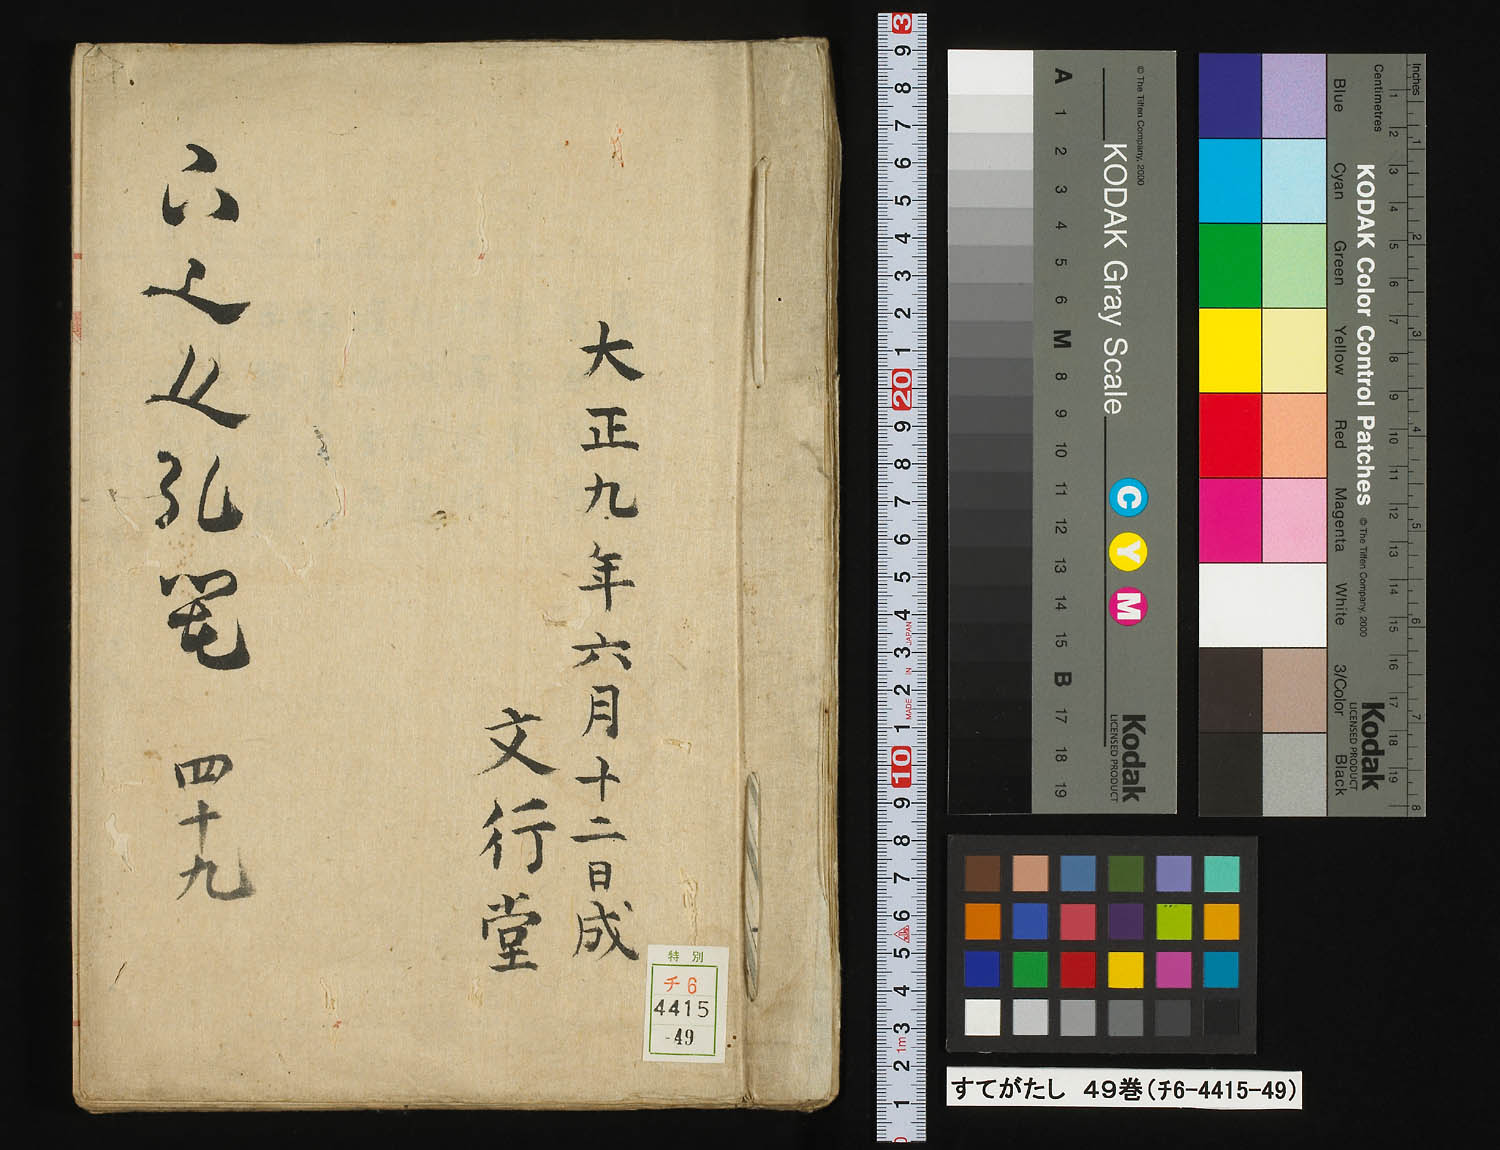 大正九年六月十二日成
文行堂
四十九
特別
チ6
4415
-49
© The Tiffen Company, 2000
KODAK Gray Scale
C Y M
Kodak
LICENSED PRODUCT
A 1 2 3 4 5 6 M 8 9 10 11 12 13 14 15 B 17 18 19
Inches
Centimetres
KODAK Color Control Patches
© The Tiffen Company, 2000
Kodak
LICENSED PRODUCT
Blue Cyan Green Yellow Red Magenta White 3/Color Black
MADE IN JAPAN
1m
すてがたし 49巻(チ6-4415-49)